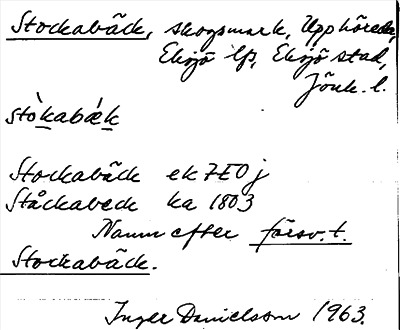 Stockabäck, skogsmark, Upphöreda,
Eksjö lfs, Eksjö stad,
Jönk. l.
stòkabæk
Stockabäck ek 7E0j
Ståckabeck ka 1803
Namn efter försv. t.
Stockabäck.
Inger Danielsson 1963.